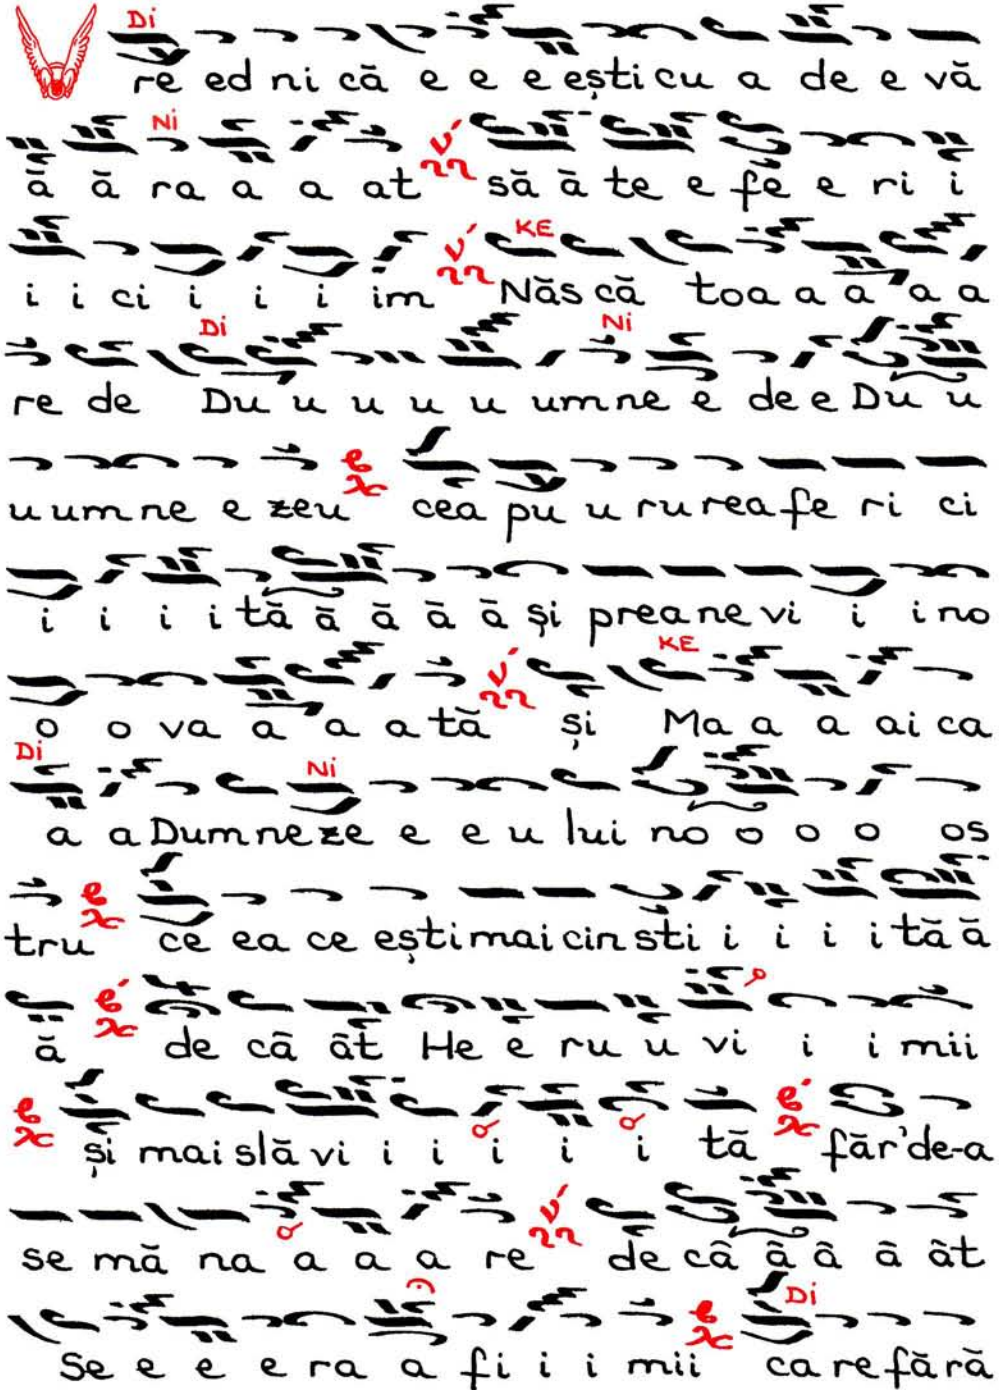 Di
V re ed ni că e e e ești cu a de e vă
Ni
ă ă ra a a at să ă te e fe e ri i
KE
i i ci i i i im Năs că toa a a a a
Di Ni
re de Du u u u u u umne e de e Du u
u umne e zeu cea pu u ru rea fe ri ci
i i i i tă ă ă ă ă și preane vi i i no
KE
o o va a a a tă și Ma a a ai ca
Di Ni
a a Dumneze e e u lui no o o o os
tru ce ea ce ești mai cin sti i i i i tă ă
ă de câ ât He e ru u vi i i mii
și mai slă vi i i i i i tă făr'de-a
se mă na a a a re de câ â â â ât
Di
Se e e e ra a fi i i mii ca re fără